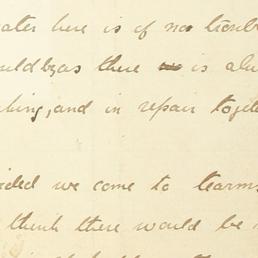 ater here is of no troub
ould by as there is alw
ing, and in repair toget
ided we come to tearms
think there would be